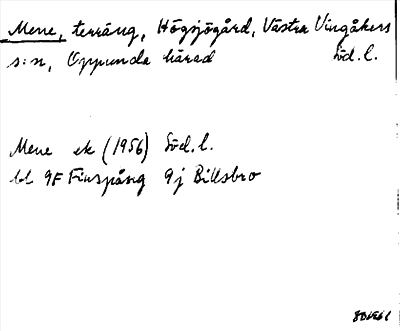 Mene, terräng, Högsjögård, Västra Vingåkers
s:n, Oppunda härad Söd.l.
Mene ek (1956) Söd.l.
bl 9F Finspång 9j Billsbro